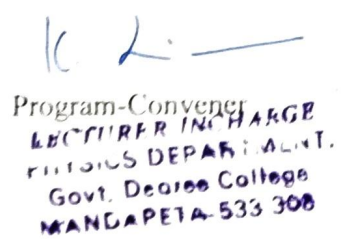 Program-Convener
LECTURER INCHARGE
PHYSICS DEPARTMENT.
Govt. Degree College
MANDAPETA-533 308